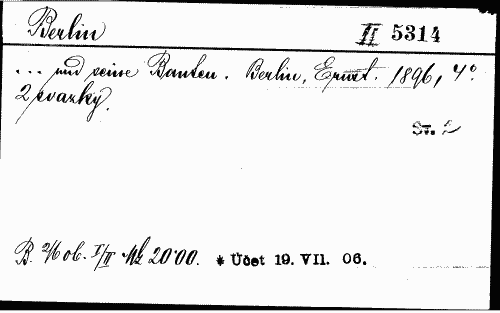 Berlin
II 5314
... und seine Bauten. Berlin, Ernst. 1896, 4°.
2 svazky.
Sv. 2
B. ob. I/II Mk 20·00. * Účet 19. VII. 06.